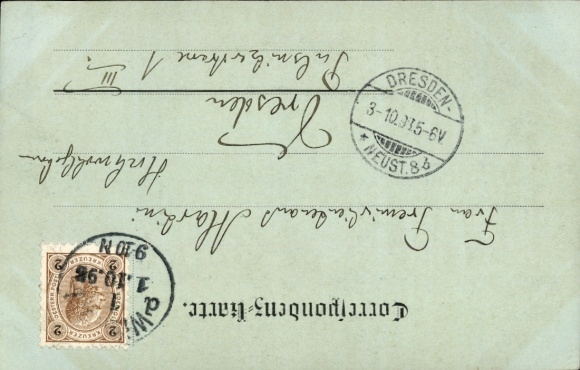 Correspondenz-Karte.
2 2
KREUZER KREUZER
9-10 N
1.10.98
Frau Premierlieutenant Mardini
Hochwohlgeboren
Dresden
Pulsnitzerstrasse 1 III.
DRESDEN-
3-10.98.5-6V.
* NEUST. 8 b